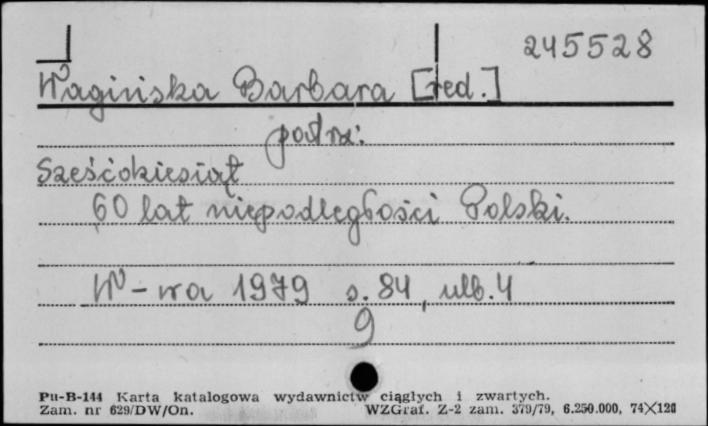 245528
Wagińska Barbara [red.]
patrz:
Sześćdziesiąt
60 lat niepodległości Polski.
W-wa 1979 s. 84, nlb. 4
9
Pu-B-144 Karta katalogowa wydawnictw ciągłych i zwartych.
Zam. nr 629/DW/On. WZGraf. Z-2 zam. 379/79, 6.250.000, 74×120